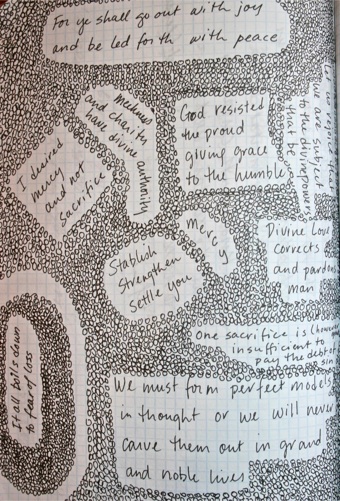 For ye shall go out with joy
and be led forth with peace
Meekness
and charity
have divine
authority
God resisted
the proud
giving grace
to the humble
Let us rejoice that
we are subject
to the divine powers
that be
I desired
mercy
and not
sacrifice
mercy
Stablish
Strengthen
settle you
Divine Love
corrects
and pardons
man
One sacrifice is
insufficient to
pay the debt of
sin
It all boils down
to fear of loss
We must form perfect models
in thought or we will never
carve them out in grand
and noble lives